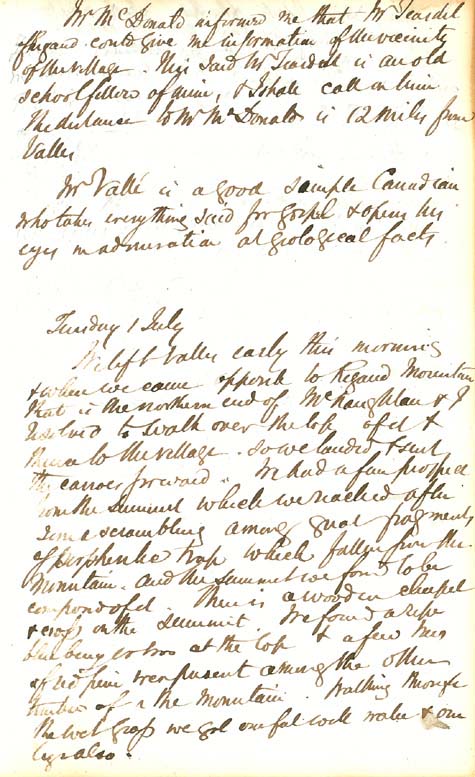 Mr McDonald informed me that Mr
of Rigaud could give me information of the vicinity
of the village. This said Mr is an old
schoolfellow of mine, & I shall call on him
The distance to Mr McDonalds is 12 miles from
Valles
Mr Vallé is a good simple Canadian
who takes everything said for gospel & opens his
eyes in admiration at geological facts.
Tuesday 1 July
We left Valles early this morning
& when we came opposite to Rigaud Mountain
that is the northern end of McNaughtan & I
resolved to walk over the top of it &
thence to the village. So we landed & sent
the canoes forward. We had a fine prospect
from the summit which we reached after
some scrambling among great fragments
of porphyritic trap which fallen from the
Mountain. and the summit we found to be
composed of it. There is a wooden chapel
& cross on the summit. We found a ripe
blue berry or two at the top & a few trees
of red pine were present among the other
timber of the Mountain. Walking through
the wet grass we got our feet well water & our
legs also.